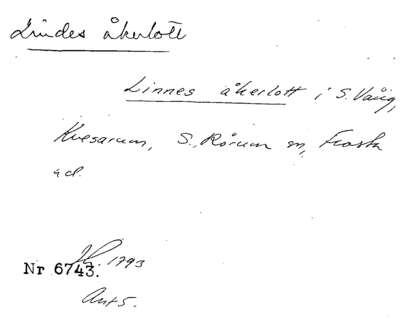 Lindes åkerlott
Linnes åkerlott i S. Vång,
Kvesarum, S. Rörum sn, Frosta
hd.
1793
Nr 6743.
Ant 5.